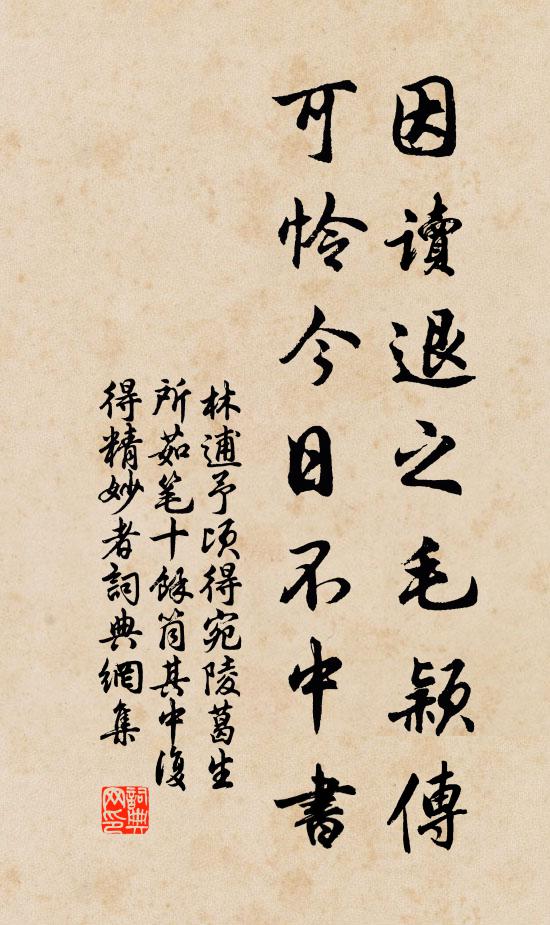 因讀退之毛颖傳
可怜今日不中書
林逋予頃得宛陵葛生
所茹笔十餘筒其中復
得精妙者詞典網集
詞典
网印